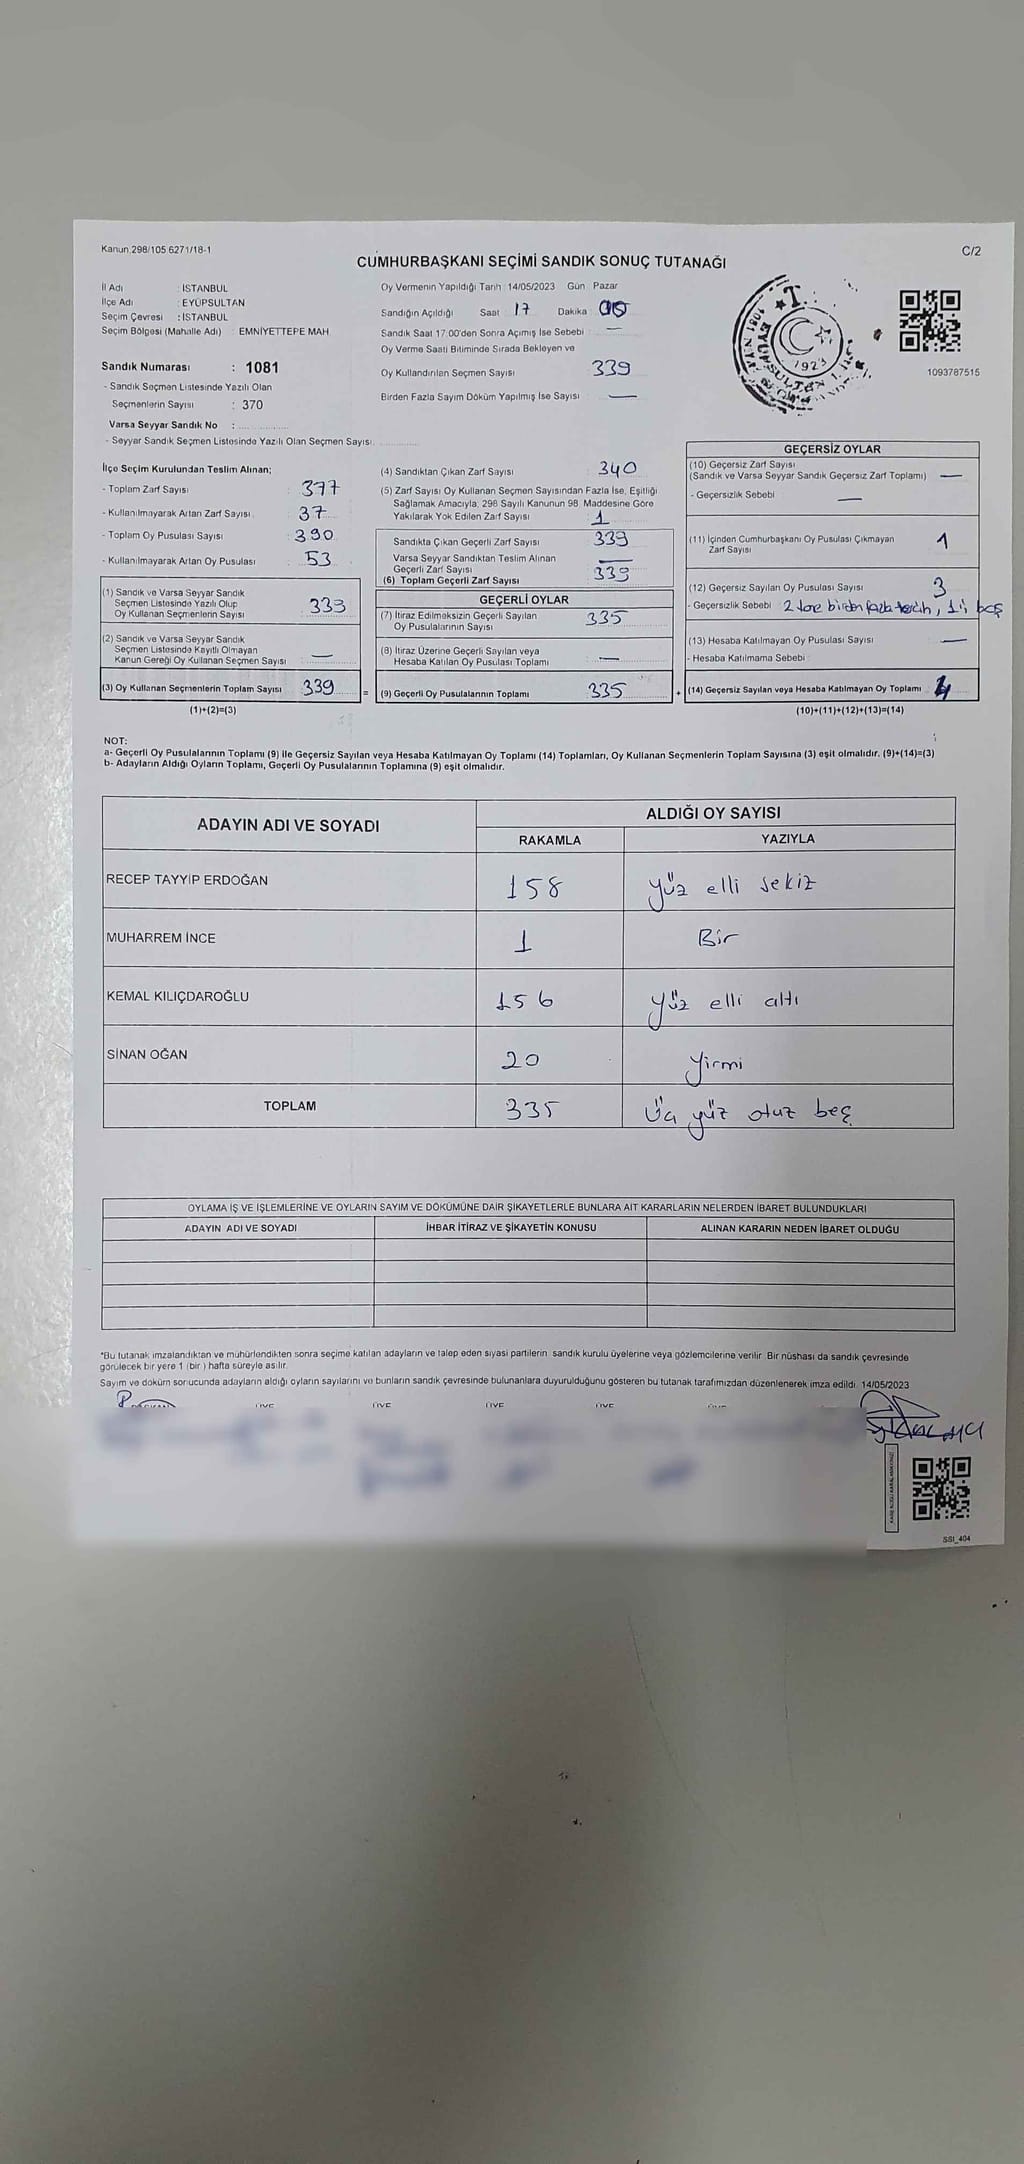 Kanun 298/105 6271/18-1
C/2
CUMHURBAŞKANI SEÇİMİ SANDIK SONUÇ TUTANAĞI
İl Adı : İSTANBUL
İlçe Adı : EYÜPSULTAN
Seçim Çevresi : İSTANBUL
Seçim Bölgesi (Mahalle Adı) : EMNİYETTEPE MAH.
Sandık Numarası : 1081
- Sandık Seçmen Listesinde Yazılı Olan
Seçmenlerin Sayısı : 370
Varsa Seyyar Sandık No :
- Seyyar Sandık Seçmen Listesinde Yazılı Olan Seçmen Sayısı:
Oy Vermenin Yapıldığı Tarih : 14/05/2023 Gün : Pazar
Sandığın Açıldığı Saat : 17 Dakika :
Sandık Saat 17:00'den Sonra Açılmış İse Sebebi : —
Oy Verme Saati Bitiminde Sırada Bekleyen ve
Oy Kullandırılan Seçmen Sayısı : 339
Birden Fazla Sayım Döküm Yapılmış İse Sayısı : —
1923
1093787515
İlçe Seçim Kurulundan Teslim Alınan;
- Toplam Zarf Sayısı : 377
- Kullanılmayarak Artan Zarf Sayısı : 37
- Toplam Oy Pusulası Sayısı : 390
- Kullanılmayarak Artan Oy Pusulası : 53
(1) Sandık ve Varsa Seyyar Sandık
Seçmen Listesinde Yazılı Olup
Oy Kullanan Seçmenlerin Sayısı : 339
(2) Sandık ve Varsa Seyyar Sandık
Seçmen Listesinde Kayıtlı Olmayan
Kanun Gereği Oy Kullanan Seçmen Sayısı : —
(3) Oy Kullanan Seçmenlerin Toplam Sayısı : 339 =
(1)+(2)=(3)
(4) Sandıktan Çıkan Zarf Sayısı : 340
(5) Zarf Sayısı Oy Kullanan Seçmen Sayısından Fazla İse, Eşitliği
Sağlamak Amacıyla, 298 Sayılı Kanunun 98. Maddesine Göre
Yakılarak Yok Edilen Zarf Sayısı : 1
Sandıkta Çıkan Geçerli Zarf Sayısı : 339
Varsa Seyyar Sandıktan Teslim Alınan
Geçerli Zarf Sayısı : —
(6) Toplam Geçerli Zarf Sayısı : 339
GEÇERLİ OYLAR
(7) İtiraz Edilmeksizin Geçerli Sayılan
Oy Pusulalarının Sayısı : 335
(8) İtiraz Üzerine Geçerli Sayılan veya
Hesaba Katılan Oy Pusulası Toplamı : —
(9) Geçerli Oy Pusulalarının Toplamı : 335 +
GEÇERSİZ OYLAR
(10) Geçersiz Zarf Sayısı
(Sandık ve Varsa Seyyar Sandık Geçersiz Zarf Toplamı) : —
- Geçersizlik Sebebi : —
(11) İçinden Cumhurbaşkanı Oy Pusulası Çıkmayan
Zarf Sayısı : 1
(12) Geçersiz Sayılan Oy Pusulası Sayısı : 3
- Geçersizlik Sebebi : 2 tane birden fazla tercih, 1'i boş
(13) Hesaba Katılmayan Oy Pusulası Sayısı : —
- Hesaba Katılmama Sebebi :
(14) Geçersiz Sayılan veya Hesaba Katılmayan Oy Toplamı : 4
(10)+(11)+(12)+(13)=(14)
NOT:
a- Geçerli Oy Pusulalarının Toplamı (9) ile Geçersiz Sayılan veya Hesaba Katılmayan Oy Toplamı (14) Toplamları, Oy Kullanan Seçmenlerin Toplam Sayısına (3) eşit olmalıdır. (9)+(14)=(3)
b- Adayların Aldığı Oyların Toplamı, Geçerli Oy Pusulalarının Toplamına (9) eşit olmalıdır.
ADAYIN ADI VE SOYADI
ALDIĞI OY SAYISI
RAKAMLA YAZIYLA
RECEP TAYYİP ERDOĞAN 158 yüz elli sekiz
MUHARREM İNCE 1 Bir
KEMAL KILIÇDAROĞLU 156 yüz elli altı
SİNAN OĞAN 20 yirmi
TOPLAM 335 üç yüz otuz beş
OYLAMA İŞ VE İŞLEMLERİNE VE OYLARIN SAYIM VE DÖKÜMÜNE DAİR ŞİKAYETLERLE BUNLARA AİT KARARLARIN NELERDEN İBARET BULUNDUKLARI
ADAYIN ADI VE SOYADI İHBAR İTİRAZ VE ŞİKAYETİN KONUSU ALINAN KARARIN NEDEN İBARET OLDUĞU
*Bu tutanak imzalandıktan ve mühürlendikten sonra seçime katılan adayların ve talep eden siyasi partilerin sandık kurulu üyelerine veya gözlemcilerine verilir. Bir nüshası da sandık çevresinde
görülecek bir yere 1 (bir) hafta süreyle asılır.
Sayım ve döküm sonucunda adayların aldığı oyların sayılarını ve bunların sandık çevresinde bulunanlara duyurulduğunu gösteren bu tutanak tarafımızdan düzenlenerek imza edildi. 14/05/2023
SSI_404